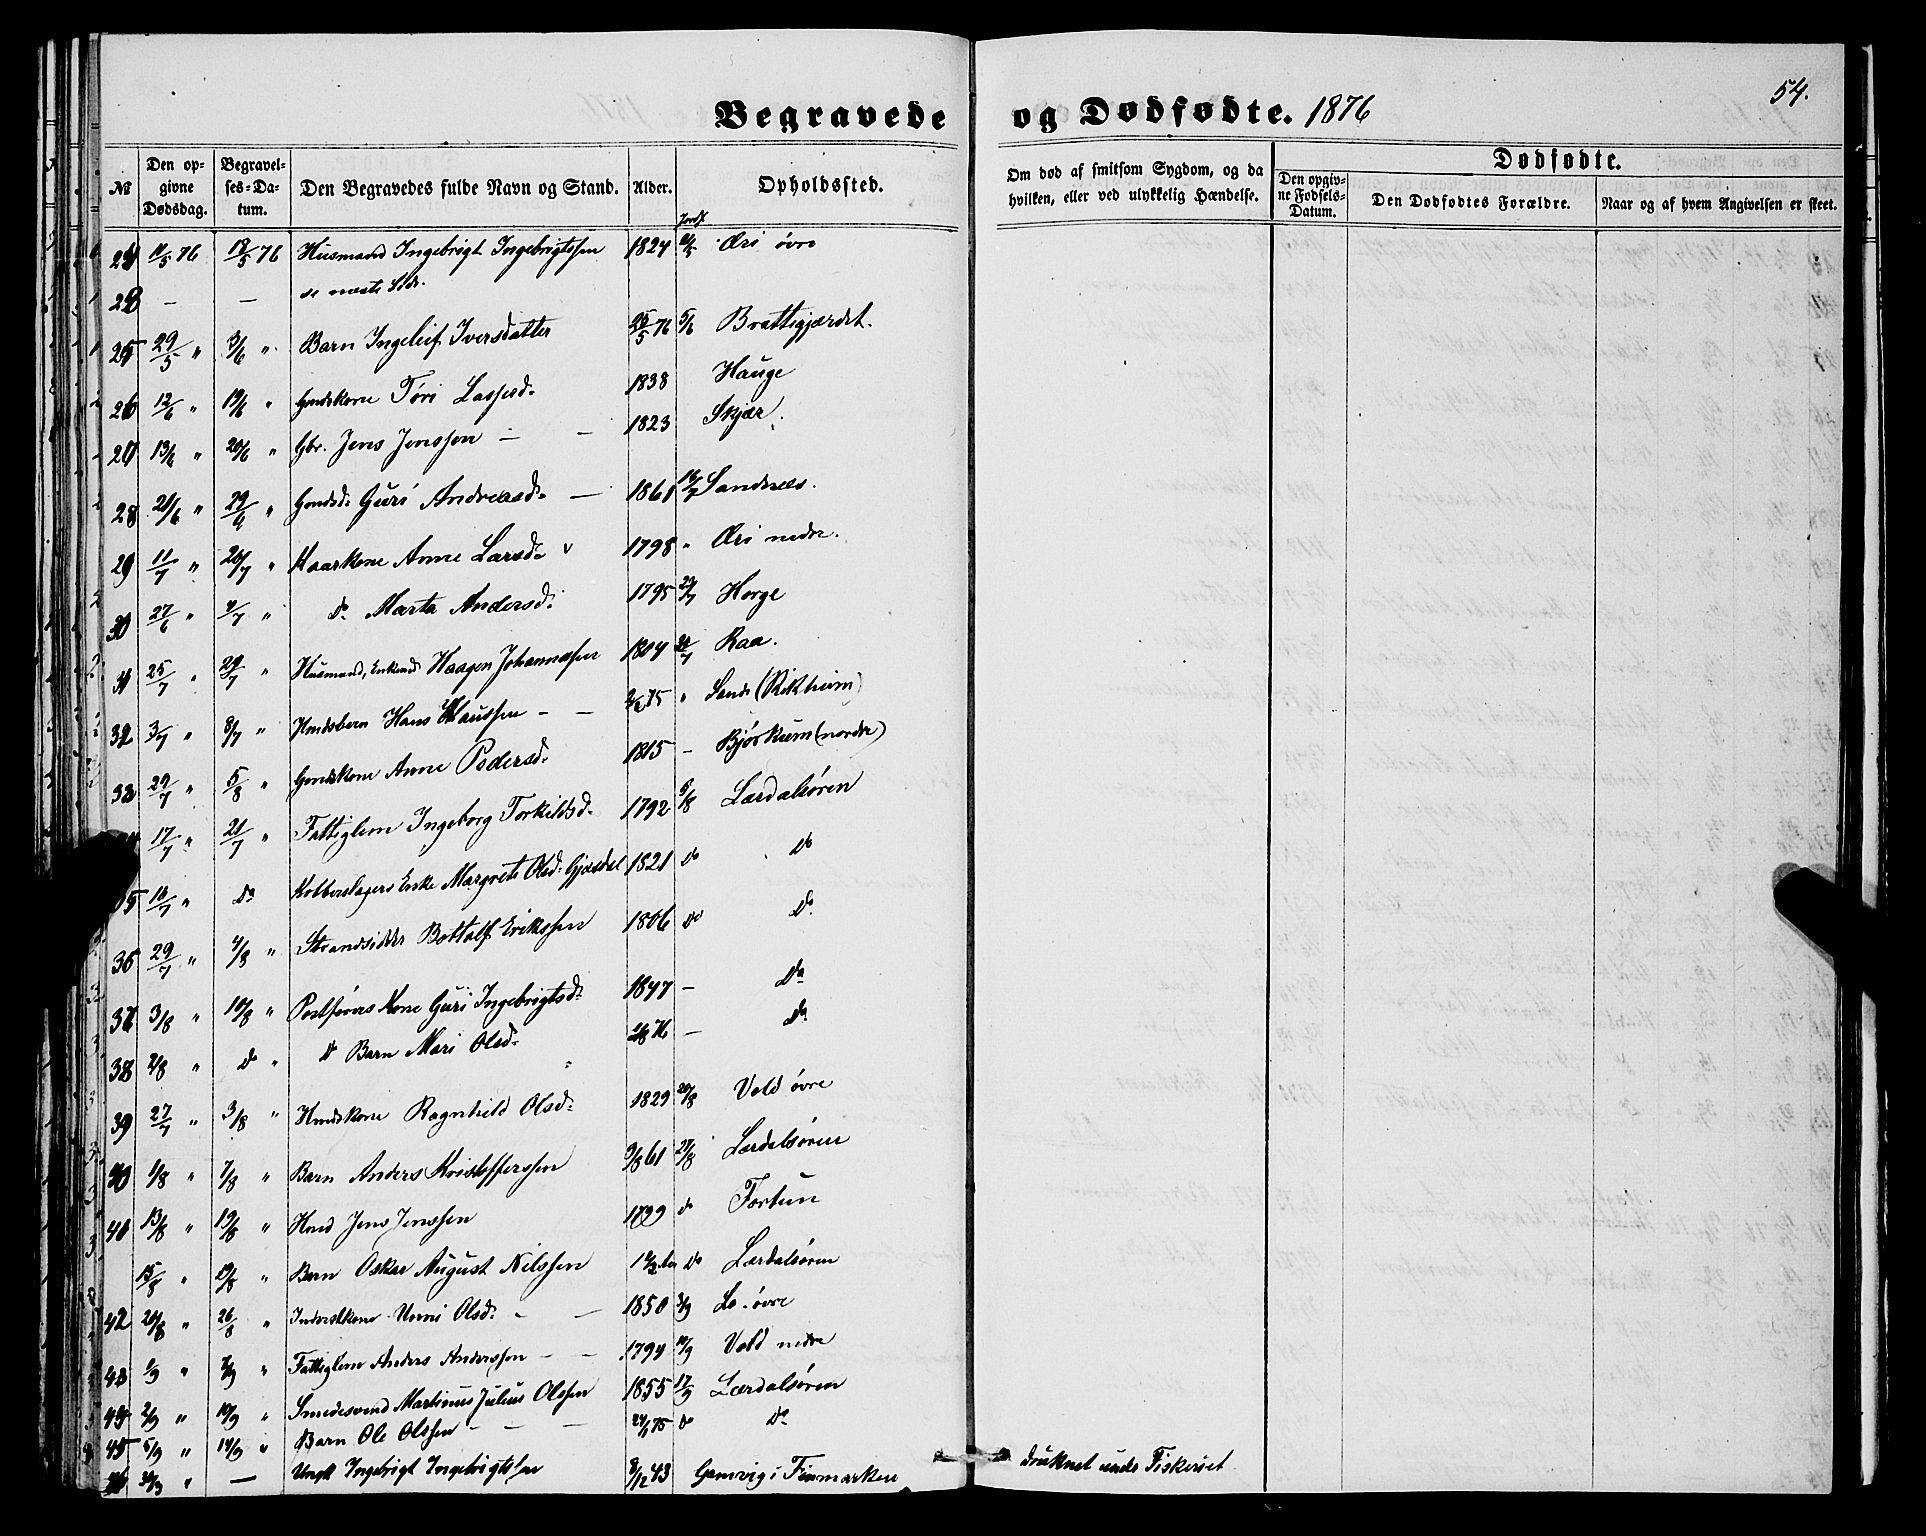 54.
Begravede og Dødfødte. 1876
№ Den opgivne Dødsdag. Begravelses-Datum. Den Begravedes fulde Navn og Stand. Alder. Opholdssted. Om død af smitsom Sygdom, og da hvilken, eller ved ulykkelig Hændelse. Dødfødte. Den opgivne Fødsels-Datum. Den Dødfødtes Forældre. Naar og af hvem Angivelsen er skeet.
11/5 76 18/5 76 Husmand Ingebrigt Ingebrigtssen 1824 Øri øvre
— — se næste Side.
25 29/5 " 3/6 " Barn Ingeleif Iversdatter 25/5 76 5/6 Brattegjærdet.
26 12/6 " 19/6 " Gmdskone Tøri Lassesd. 1838 Hauge
13/6 " 20/6 " Gbr. Jens Jenssen — — 1823 Skjær.
28 21/6 " 29/6 " Gmdsd. Guri Andreasd. — 1861 Sandnes.
29 11/7 " 20/7 " Kaarkone Anne Larsd. 1798 " Øri nedre.
30 27/6 " 4/7 " do Marta Andersd. 1795 Horge
31 25/7 " 29/7 " Husmand, Enkemd. Haagen Johannessen 1804 Raa.
32 3/7 " 8/7 " Hmdsbarn Hans — — " Sande (Rikheim)
33 29/7 " 5/8 " Gmdskone Anne Pedersd. 1815 — Bjørkum (nordre)
17/7 " 21/7 " Fattiglem Ingeborg Torkildsd. 1792 6/8 Lærdalsøren
35 16/7 " do Kobberslagers Enke Margrete Olsd. Gjesdal 1821 do do
36 29/7 " 4/8 " Strandsidder Bottolf Erikssen 1806 do do
37 3/8 " 10/8 " Postførers Kone Guri Ingebrigtsd. 1847 — do
38 2/8 " do " do Barn Mari Olsd. — do
39 27/7 " 3/8 " Hmdskone Ragnhild Olsd. 1829 20/8 Vold øvre
40 1/8 " 7/8 " Barn Anders Kristofferssen 9/8 61 27/8 Lærdalsøren
41 13/8 " 19/8 " Hmd Jens Jenssen do Fortun
15/8 " 19/8 " Barn Oskar August Nilssen do Lærdalsøren
42 20/8 " 26/8 " Inderstkone Unni Olsd. — — 1850 3/9 Lo øvre
43 1/9 " " Fattiglem Anders Anderssen — — 1794 10/9 Vold nedre
44 2/9 " 10/9 " Smedesvend Martinus Julius Olssen 1855 17/9 Lærdalsøren
45 5/9 " 14/9 " Barn Ole Olssen — — — do do
" — Ungk. Ingebrigt Ingebrigtssen 8/12 43 Gamvig i Finmarken druknet under Fiskeriet